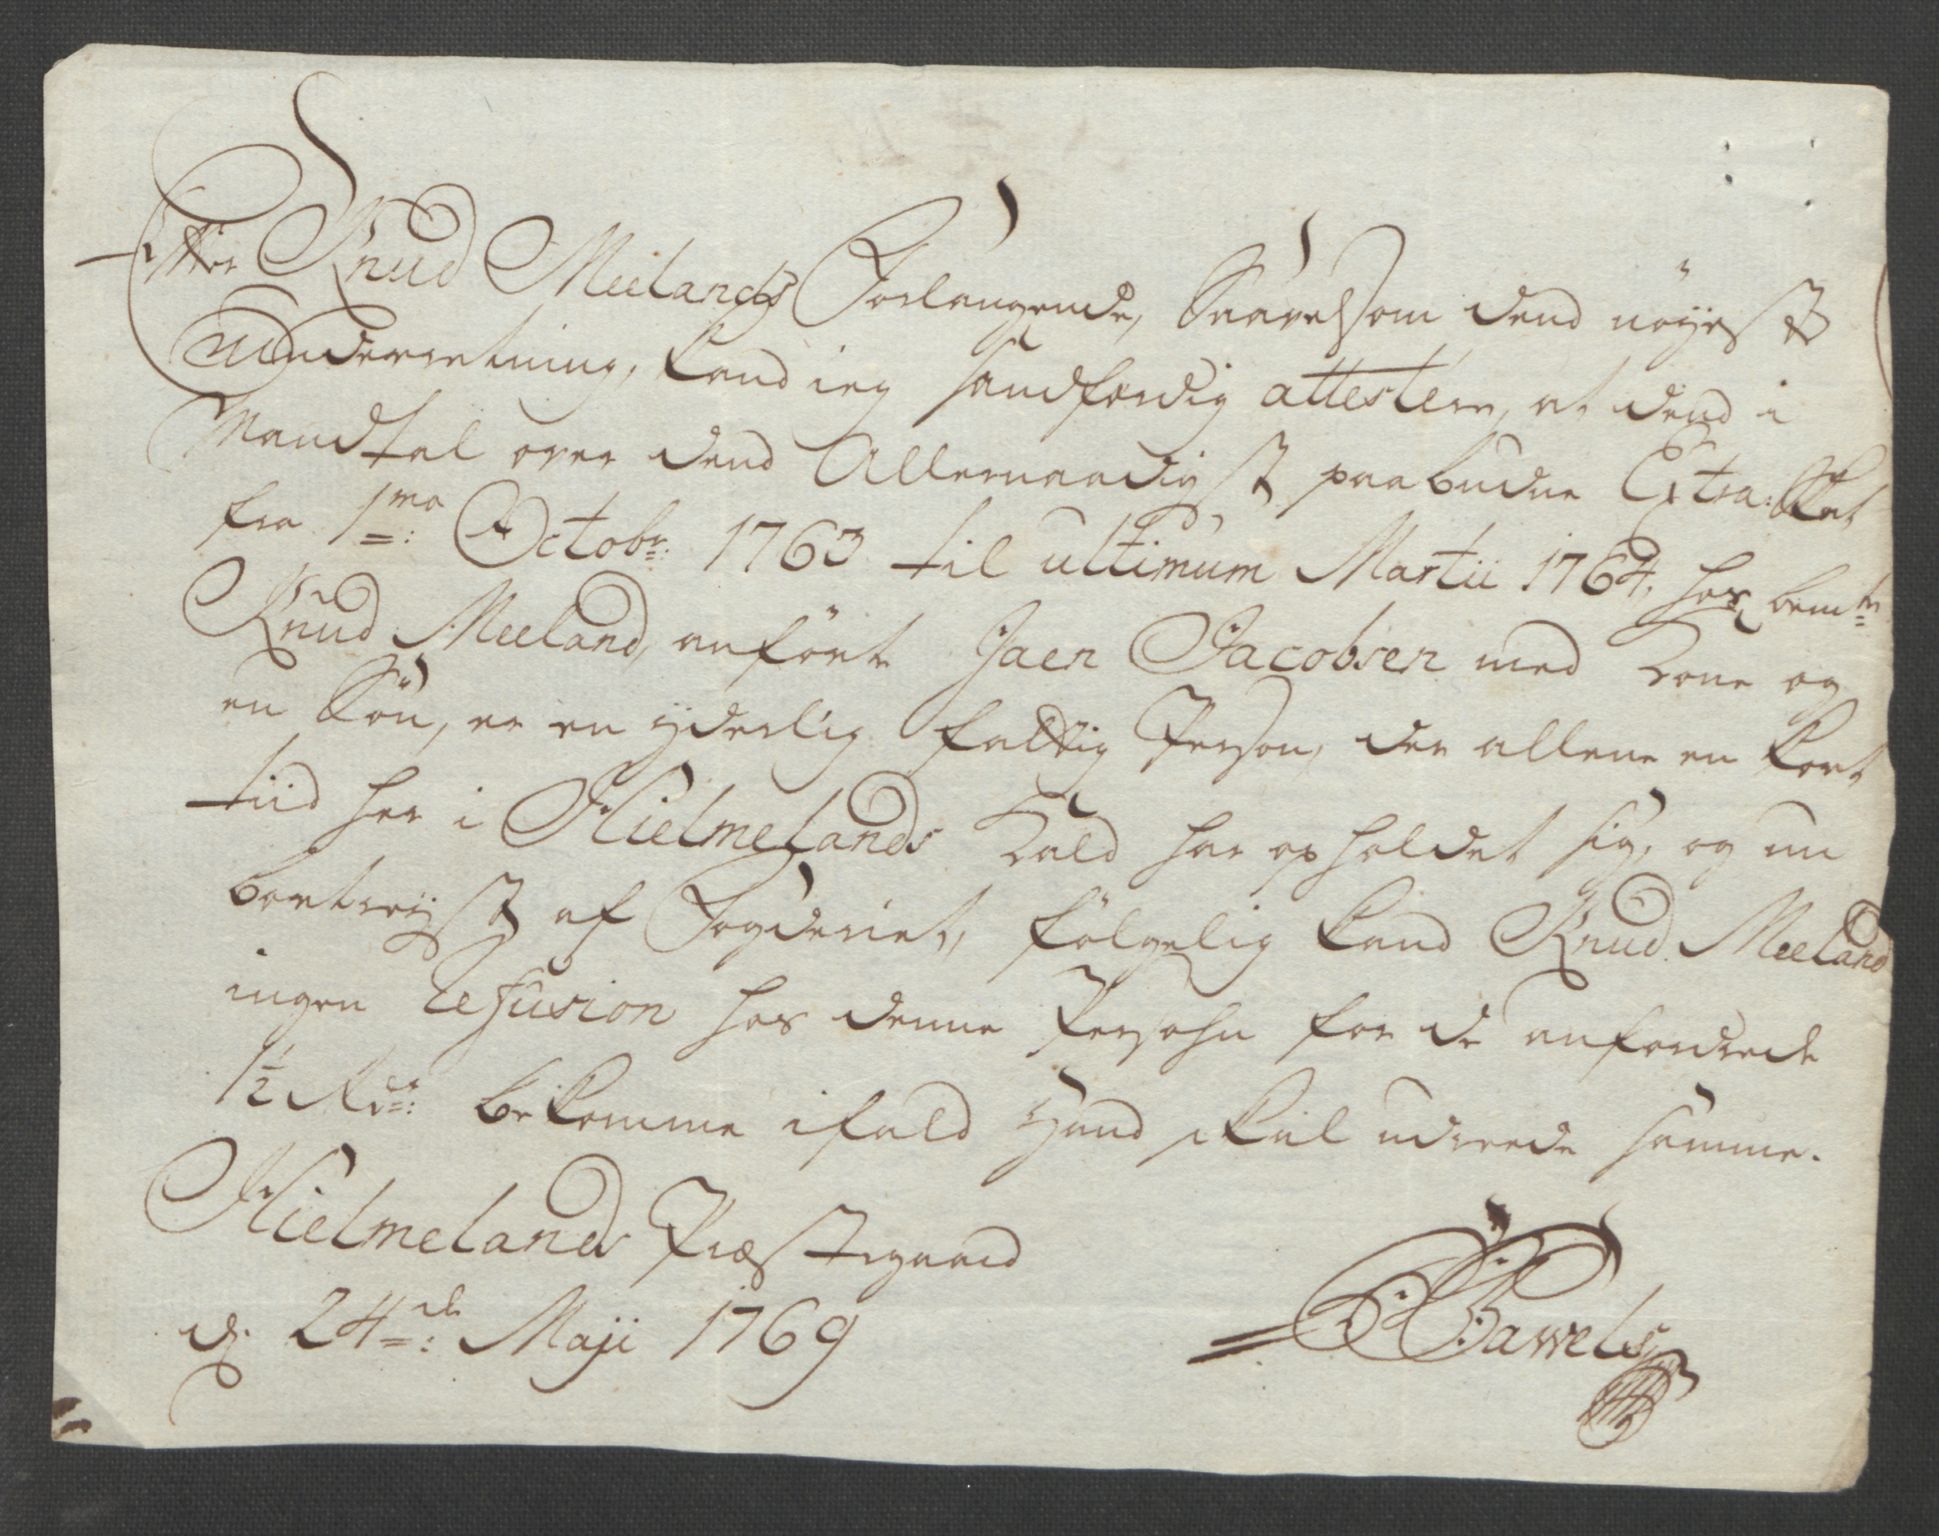 Efter Knud Meelands Forlangende, Saavelsom dend nøyeste
Underretning, kand ieg sandfærdig attestere, at dend i
Mandtal over dend Allernaadigst paabudne Extra: Skat
fra 1mo: Octobr: 1763 til ultimum Martii 1764, hos bemte
Knud Meeland, anførte Jaen Jacobsen med Kone og
en Søn, er en yderlig fattig Person, der allene en kort
tiid her i Hielmelands Kald har opholdet sig, og nu
bortreyst af Fogderiet, følgelig kand Knud Meeland
ingen Refusion hos denne Persohn for de anfordrede
1½ Rdr: bekomme ifald Hand skal udreede samme.
Hielmelands Præstegaard
d. 24de: Maji 1769
Pawels